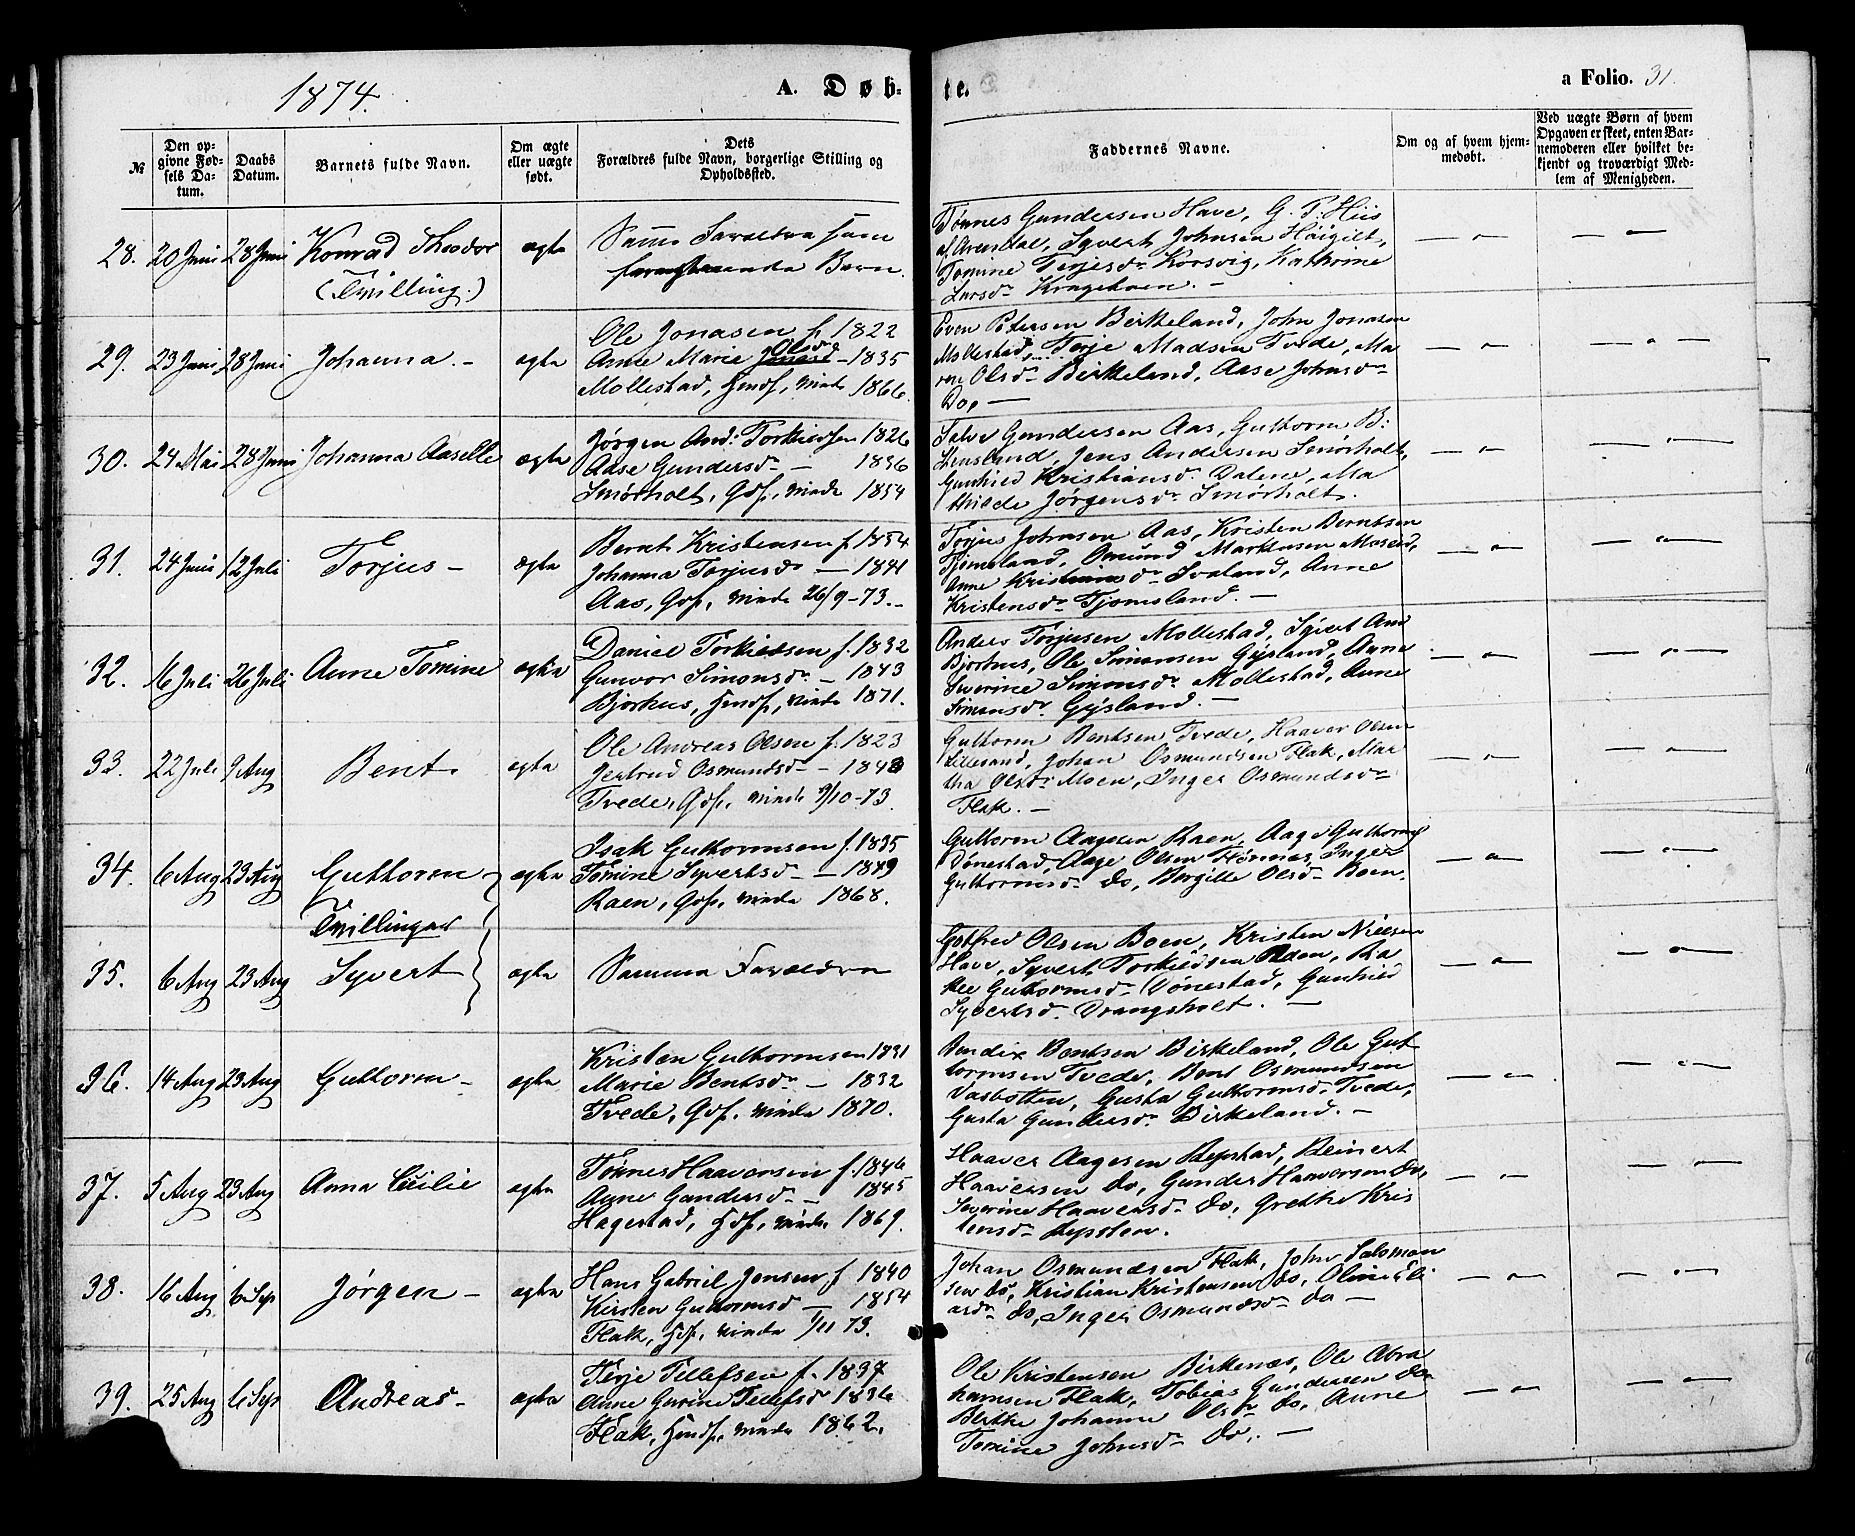 1874.
A. Døb-
te.
a Folio. 31.
№
Den op-
givne Fød-
sels Da-
tum.
Daabs
Datum.
Barnets fulde Navn.
Om ægte
eller uægte
født.
Dets
Forældres fulde Navn, borgerlige Stilling og
Opholdssted.
Faddernes Navne.
Om og af hvem hjem-
medøbt.
Ved uægte Børn af hvem
Opgaven er skeet, enten Bar-
nemoderen eller hvilket be-
kjendt og troværdigt Med-
lem af Menigheden.
28. 20 Juni 28 Juni Konrad Theodor
(Tvilling.)
ægte
Samme Forældre som
foregaaende Barn.
Tønnes Gundersen Have, G. P. Hiis
af Arendal, Syvert Johnsen Høigilt,
Tomine Terjesdr Korsvig, Kathrine
Larsdr
29. 23 Juni 28 Juni Johanna.-
ægte
Ole Jonasen f. 1822
Anne Marie Olsd - 1835
Mollestad, Hmdf, viede 1866.
Even Petersen Birkeland, John Jonasen
Mollestad, Terje Madsen Tvede, Ma
ren Olsdr Birkeland, Aase Johnsdr
Do, -
30. 24 Mai 28 Juni Johanna Aaselle
ægte
Jørgen And: Torkildsen 1826
Aase Gundersdr - 1836
Smørholt, Gdf, viede 1854
Salve Gundersen Aas, Guttorm B:
Jens Andersen Smørholt,
Gunhild Kristiansdr Dalene, Ma
thilde Jørgensdr Smørholt.
31. 24 Juni 12 Juli Torjus -
ægte
Bernt Kristensen f. 1854
Johanna Torjusdr - 1841
Aas, Gdf, viede 26/9-73.-
Torjus Johnsen Aas, Kristen Berntsen
Tjomsland, Omund Markusen Moseid,
Anne Kristiansdr Svaland, Anne
Kristensdr Tjomsland. -
32. 16 Juli 26 Juli Anne Tomine
ægte
Daniel Torkildsen f. 1832
Gunvor Simonsdr - 1843
Bjorhus, Hmdf, viede 1871.
Anders Torjusen Mollestad, Syvert And
Bjorhus, Ole Simonsen Gysland, Anne
Severine Simonsdr Mollestad, Anne
Simonsdr Gysland. -
33. 22 Juli 9 Aug Bent.
ægte
Ole Andreas Olsen f. 1823
Jertrud Osmundsdr - 1843
Tvede, Gdf, viede 9/10-73.
Guttorm Bentsen Tvede, Haaver Olsen
Lillesand, Johan Osmundsen Flak, Mar
tha Olsdr Moen, Inger Osmundsdr
Flak. -
34. 6 Aug 23 Aug Guttorm
Tvillinger
ægte
Isak Guttormsen f. 1835
Tomine Syvertsdr - 1849
Raen, Gdf, viede 1868.
Guttorm Aagesen Raen, Aage Guttorms
Dønestad, Aage Olsen Inger
Guttormsdr do, Borgille Olsdr Boen.
35. 6 Aug 23 Aug Syvert
ægte
Samme Forældre
Gotfred Olsen Boen, Kristen Nielsen
Have, Syvert Torkildsen Raen, Ra
kel Guttormsdr Dønestad, Gunhild
Syvertsdr Drangsholt. -
36. 14 Aug 23 Aug Guttorm -
ægte
Kristen Guttormsen 1831
Marie Bentsdr - 1832
Tvede, Gdf, viede 1870.
Bendix Bentsen Birkeland, Ole Gut
tormsen Tvede, Bent Osmundsen
Vasbotten, Gusta Guttormsdr Tvede,
Gusta Gundersdr Birkeland. -
37. 5 Aug 23 Aug Anna Cecilie
ægte
Tønnes Haaversen f. 1846
Anne Gundersdr - 1845
Hagestad, Hdf, viede 1869.
Haaver Aagesen Repstad, Reinert
Haaversen do, Gunder Haaversen do,
Severine Haaversdr do, Grethe Kris
tensdr
38. 16 Aug 6 Sep Jørgen -
ægte
Hans Gabriel Jensen f 1840
Kirsten Guttormsd - 1854
Flak, Hdf, viede 1/11 73.
Johan Osmundsen Flak, John Salomon
sen do, Kristian Kristensen do, Oline Eli
asdr do, Inger Osmundsdr do -
39. 25 Aug 6 Sep Andreas -
ægte
Terje Tellefsen f. 1837
Anne Gurine Tellefsd 1836
Flak, Hmdf, viede 1862.
Ole Kristensen Birkenæs, Ole Abra
hamsen Flak, Tobias Gundersen do
Berthe Johanne Olsdr do, Anne
Tomine Johnsdr do. -